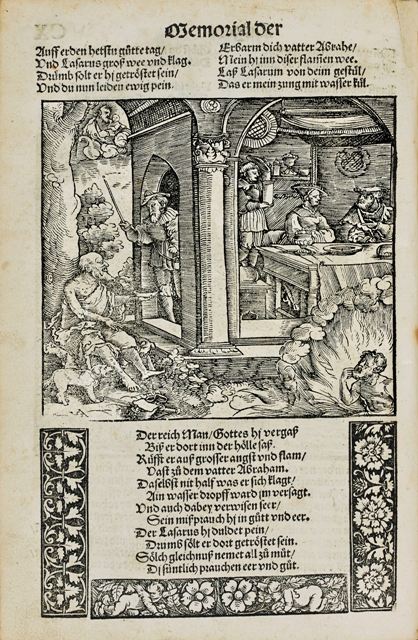 Memorial der
Auff erden hetstu gütte tag/
Vnd Lasarus groß wee vnd klag.
Drumb solt er hj getröstet sein/
Vnd du nun leiden ewig pein.
Erbarm dich vatter Abrahe/
Mein hj inn diser flam̃en wee.
Laß Lasarum von deim gestül/
Das er mein zung mit wasser kül.
Der reich Man/Gottes hj vergaß
Biß er dort inn der hölle saß.
Růfft er auß grosser angst vnd flam/
Vast zů dem vatter Abraham.
Daselbst nit half was er sich klagt/
Ain wasser dropff ward jm versagt.
Vnd auch dabey verwisen seer/
Sein mißprauch hj in gůtt vnd eer.
Der Lasarus hj duldet pein/
Drumb sölt er dort getröstet sein.
Sölch gleichnuß nemet all zů můt/
Dj süntlich prauchen eer vnd gůt.